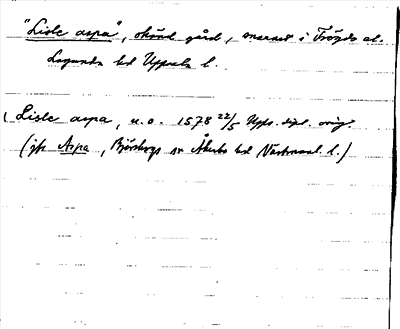 "Lisle aspa", okänd gård, snarast i Trögds el.
Lagunda hd Uppsala l.
Lisle aspa, u.o. 1578 22/5 Upps. dipl. orig.
(jfr Aspa, Björskogs sn Åkerbo hd Västmanl. l.)